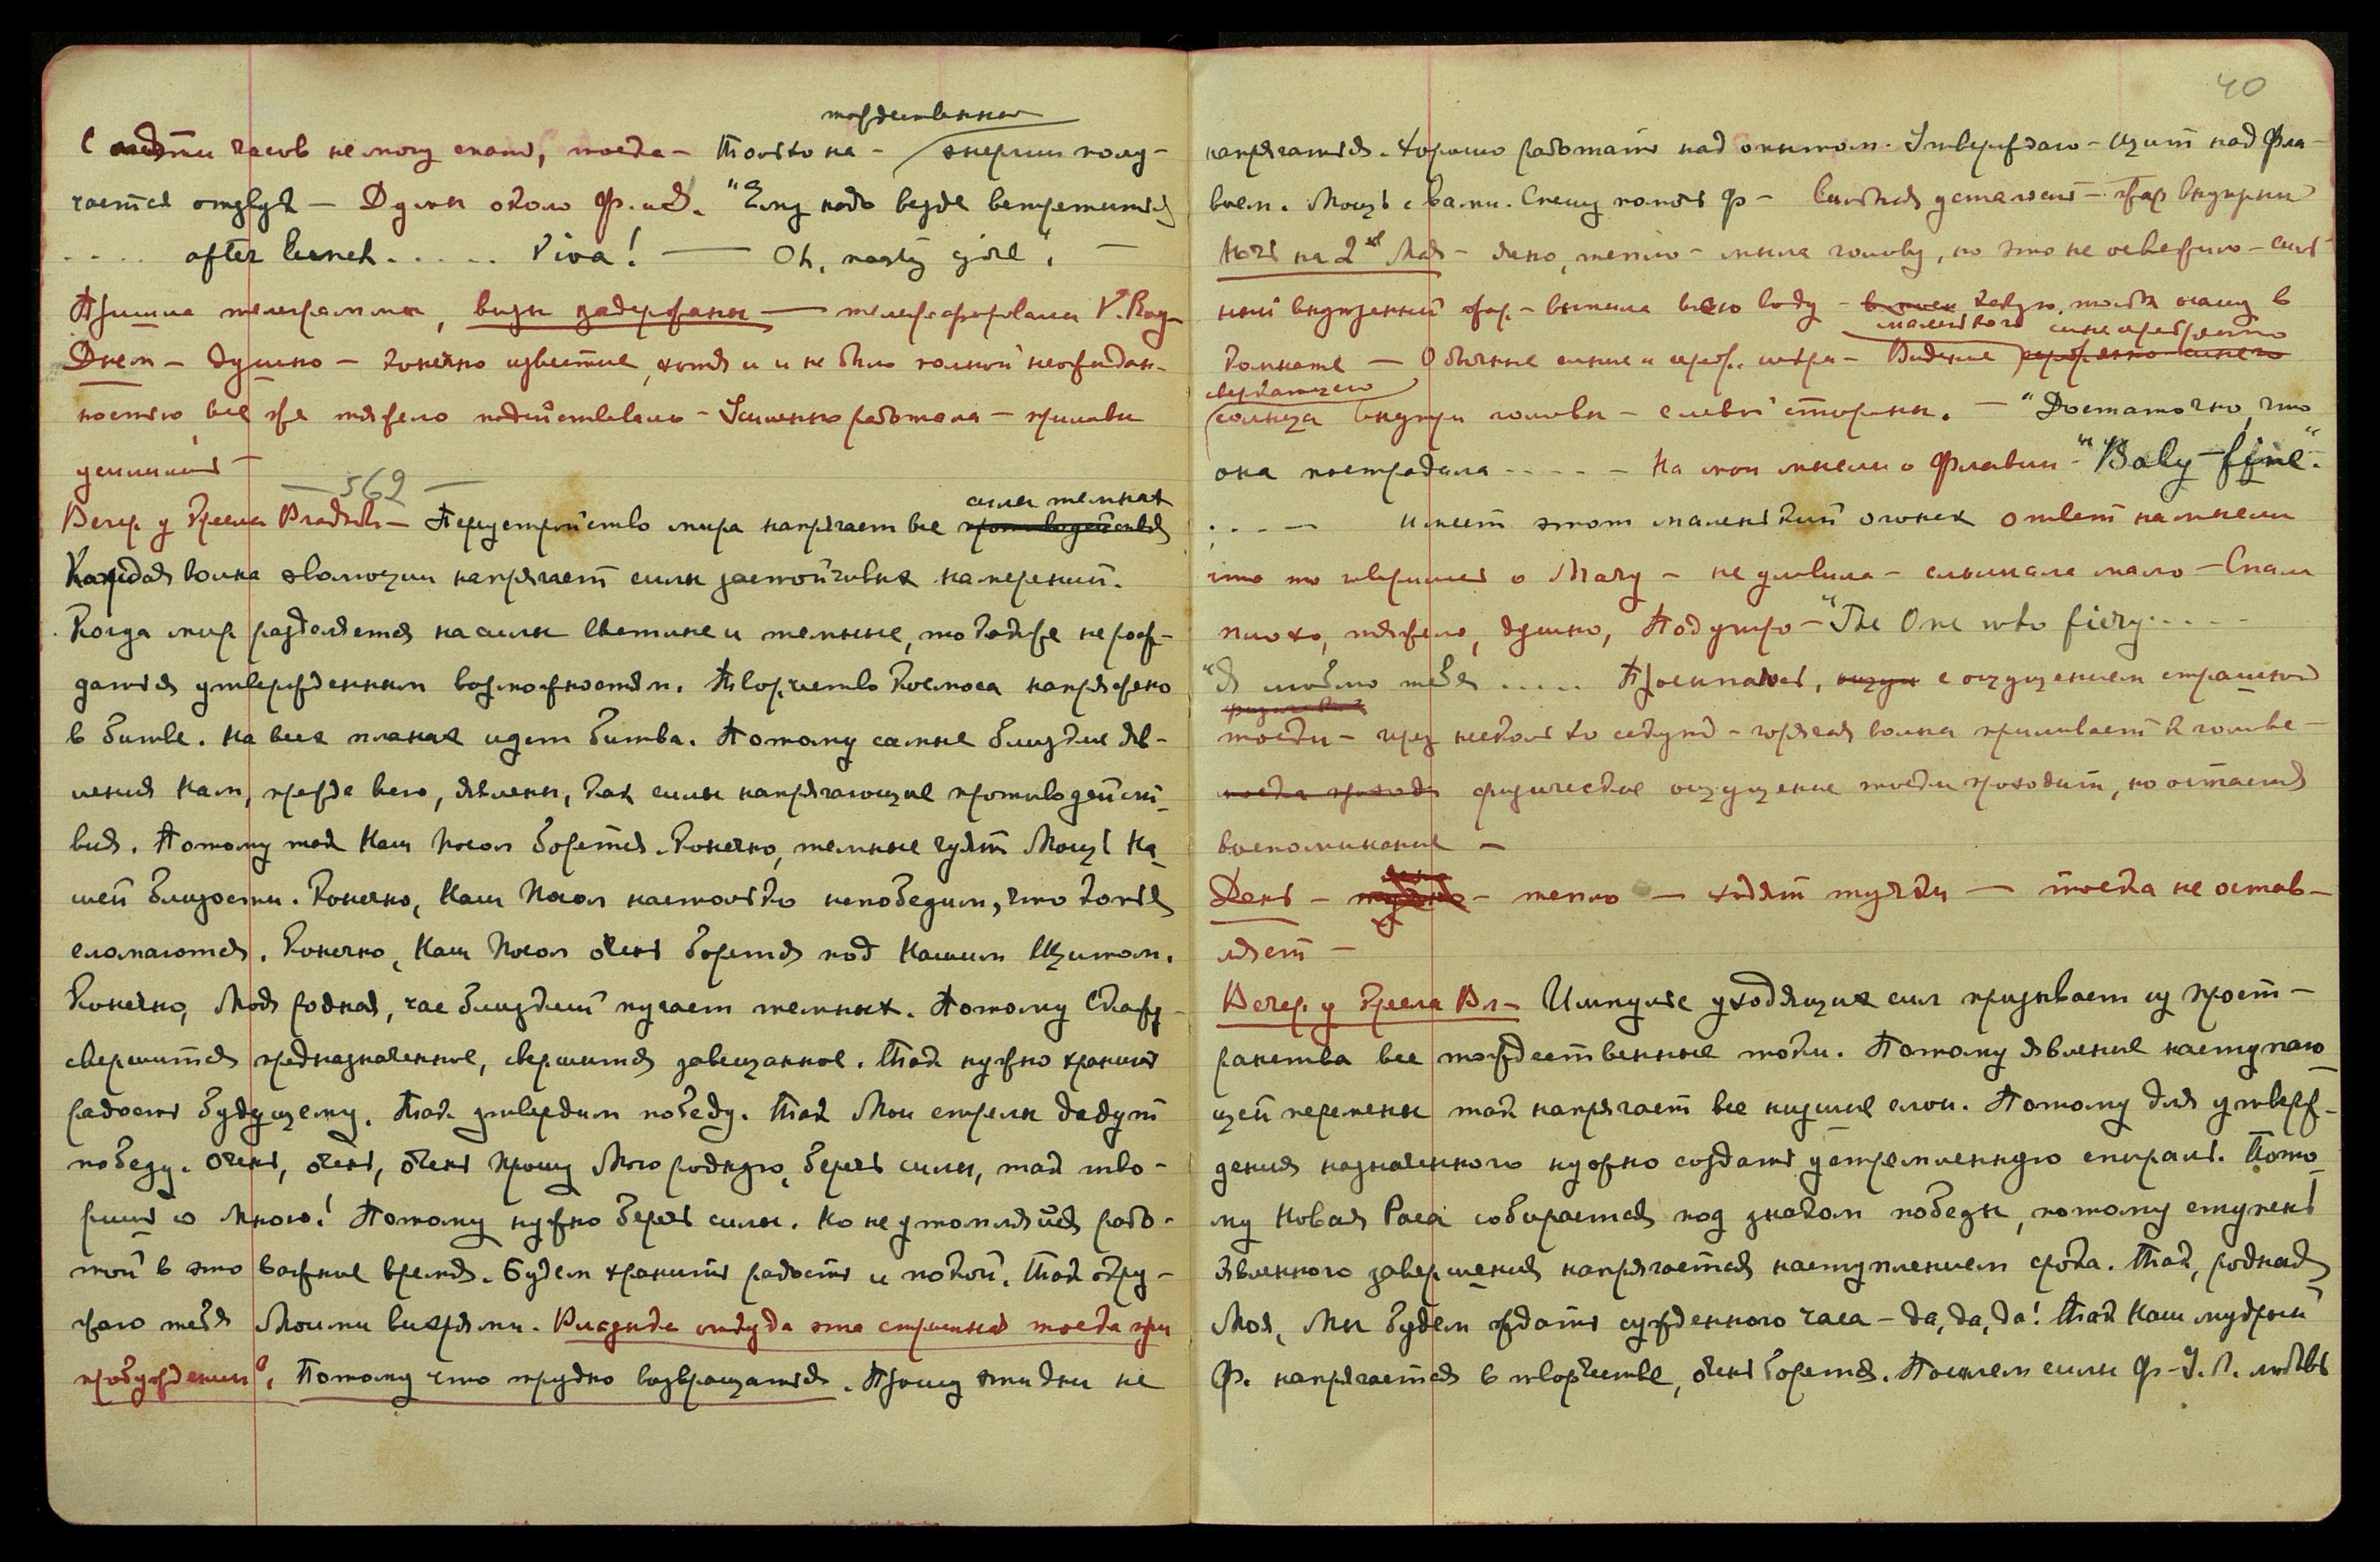 тождественные
С пяти часов не могу спать, тоска – Только на – энергии полу-
чается отзвук – Думы около Ф. и Я. "Ему надо везде встретиться
..... after lunch ..... Viva! —— Oh, nasty girl", –
Пришла телеграмма, визы задержаны —— телеграфировали V. Rog-
Днем – душно – конечно известие, хотя и и не было полной неожидан-
ностью, все же тяжело подействовало – Усиленно работала – приливы
усилились –
— 562 —
силы темных
Вечер у кресла Владыки – Переустройство мира напрягает все противодействия
Каждая волна эволюции напрягает силы застойчивых намерений.
Когда мир разделяется на силы Светлые и темные, то как же не рож-
даться утвержденным возможностям. Творчество Космоса напряжено
в битве. На всех планах идет битва. Потому самые близкие яв-
ления Нам, прежде всего, явлены, как силы напрягающие противодейст-
вия. Потому так Наш Посол борется. Конечно, темные чуят Мощь На-
шей близости. Конечно, Наш Посол настолько непобедим, что копья
сломаются. Конечно, Наш Посол очень борется под Нашим Щитом.
Конечно, Моя родная, час близкий пугает темных. Потому Скажу –
свершится предназначенное, свершится завещанное. Так нужно хранить
радость будущему. Так утвердим победу. Так Мои стрелы дадут
победу. Очень, очень, очень прошу Мою родную, беречь силы, так тво-
ришь со Мною! Потому нужно беречь силы. Но не утомляйся рабо-
той в это важное время. Будем хранить радость и покой. Так окру-
жаю тебя Моими вихрями. Владыка откуда эта страшная тоска при
пробуждении? Потому что трудно возвращаться. Прошу эти дни не
40
напрягаться. Хорошо работать над опытом. Утверждаю – щит над Фла-
вием. Мощь с вами. Спешу помочь Ф – Сильная усталость – жар внутрений
Ночь на 2ое Мая – ясно, тепло – мыла голову, но это не освежило – силь-
ный внутренний жар – выпила всю воду –
маленького сине серебристо
комнате — Обычные синие и сереб. искры – Видение серебряно синего
сверкающего
солнца внутри головы – с левой стороны. – "Достаточно, что
она пострадала ----- На мои мысли о Флавии – "Baby – fine".
..-- имеет этот маленький огонек ответ на мысли
что то говорилось о Mary – не уловила – слышала мало – Спала
плохо, тяжело, душно, Под утро – "The One who fiery.....
"Я люблю тебя ..... Просыпаюсь, с ощущением страшной
тоски – чрез несколько секунд – горячая волна приливает к голове –
тоска проход физическое ощущение тоски проходит, но остается
воспоминание –
День – – тепло — ходят тучки — тоска не остав-
ляет –
Вечер у кресла Вл – Импульс уходящих сил призывает из прост-
ранства все тождественные токи. Потому явление наступаю-
щей перемены так напрягает все низшие слои. Потому для утверж-
дения назначенного нужно создать устремленную спираль. Пото-
му Новая Раса собирается под знаком победы, потому ступень
явленного завершения напрягается наступлением срока. Так, родная
Моя, Мы будем ждать сужденного часа – да, да, да! Так Наш мудрый
Ф. напрягается в творчестве, очень борется. Пошлем силы Ф – У. Л. любовь